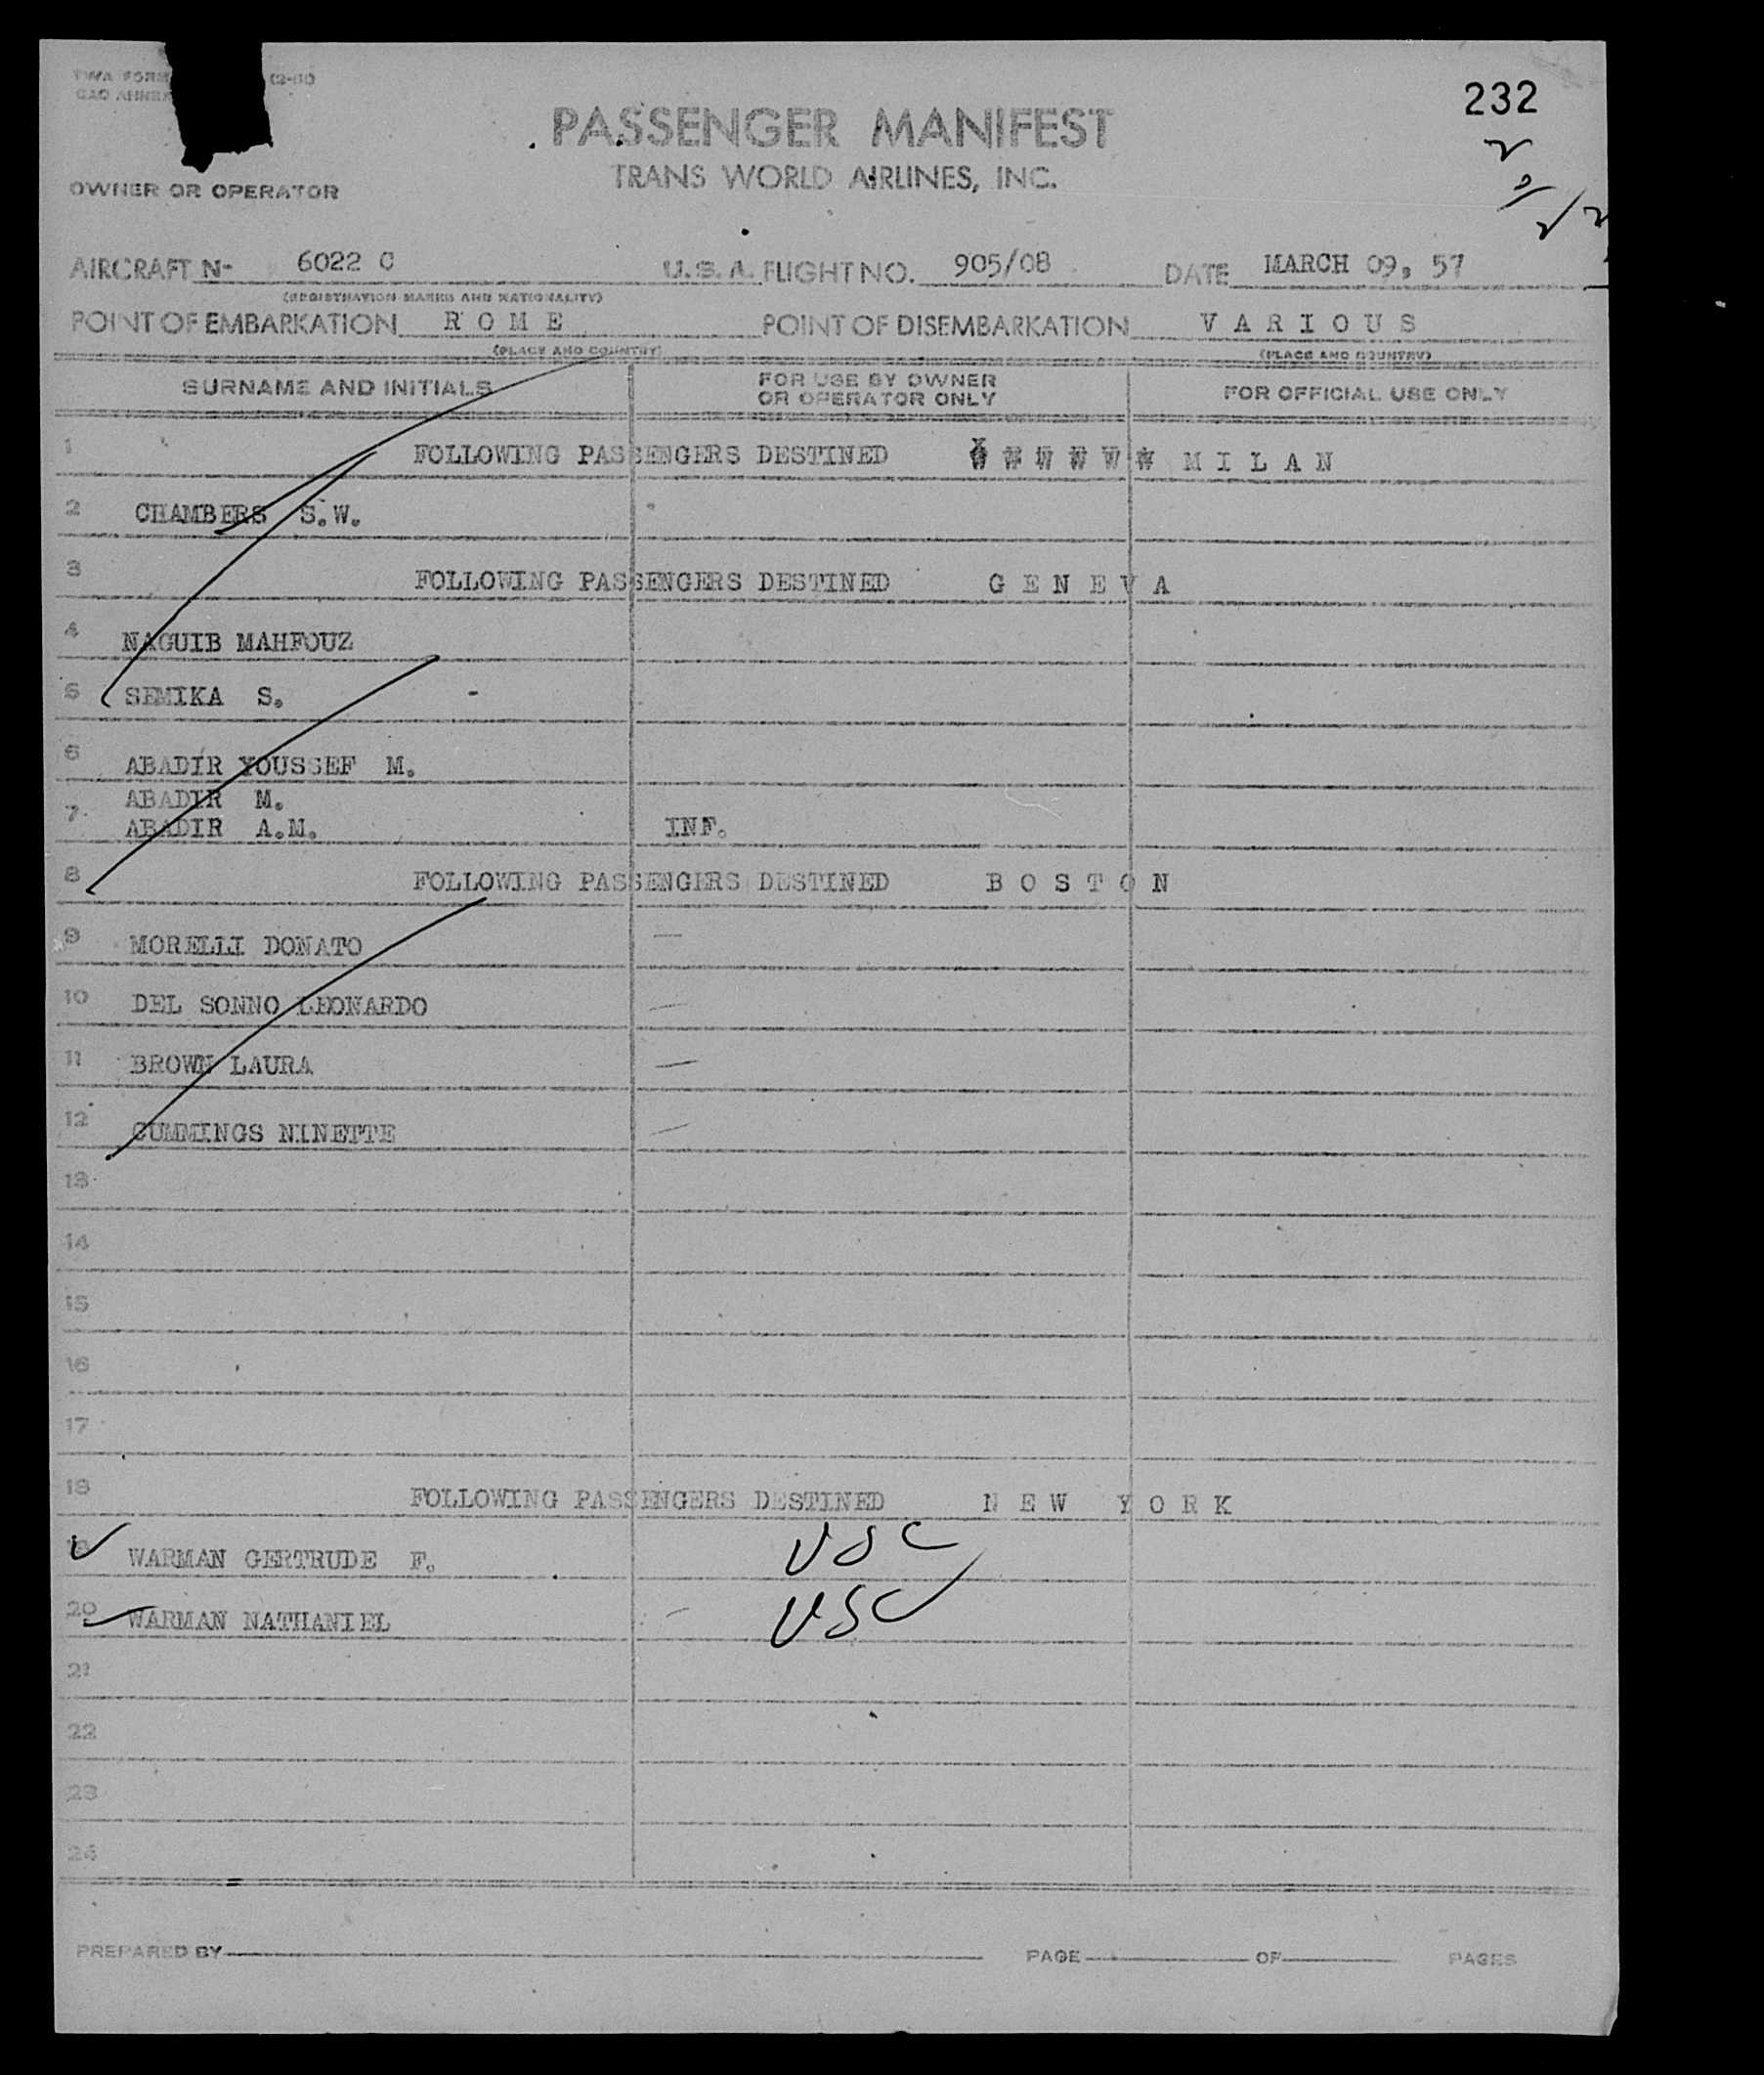 TWA FORM (2-51)
CAO ANNEX
232
PASSENGER MANIFEST
TRANS WORLD AIRLINES, INC.
OWNER OR OPERATOR
AIRCRAFT N- 6022 C U.S.A. FLIGHT NO. 905/08 DATE MARCH 09, 57
(REGISTRATION MARKS AND NATIONALITY)
POINT OF EMBARKATION R O M E POINT OF DISEMBARKATION V A R I O U S
(PLACE AND COUNTRY) (PLACE AND COUNTRY)
SURNAME AND INITIALS FOR USE BY OWNER OR OPERATOR ONLY FOR OFFICIAL USE ONLY
1 FOLLOWING PASSENGERS DESTINED M I L A N
2 CHAMBERS S.W.
3 FOLLOWING PASSENGERS DESTINED G E N E V A
4 NAGUIB MAHFOUZ
5 SEMIKA S. -
6 ABADIR YOUSSEF M.
ABADIR M.
7 ABADIR A.M. INF.
8 FOLLOWING PASSENGERS DESTINED B O S T O N
9 MORELLI DONATO
10 DEL SONNO LEONARDO
11 BROWN LAURA
12 CUMMINGS NINETTE
13
14
15
16
17
18 FOLLOWING PASSENGERS DESTINED N E W Y O R K
WARMAN GERTRUDE F. USC
20 WARMAN NATHANIEL USC
21
22
23
24
PREPARED BY PAGE OF PAGES